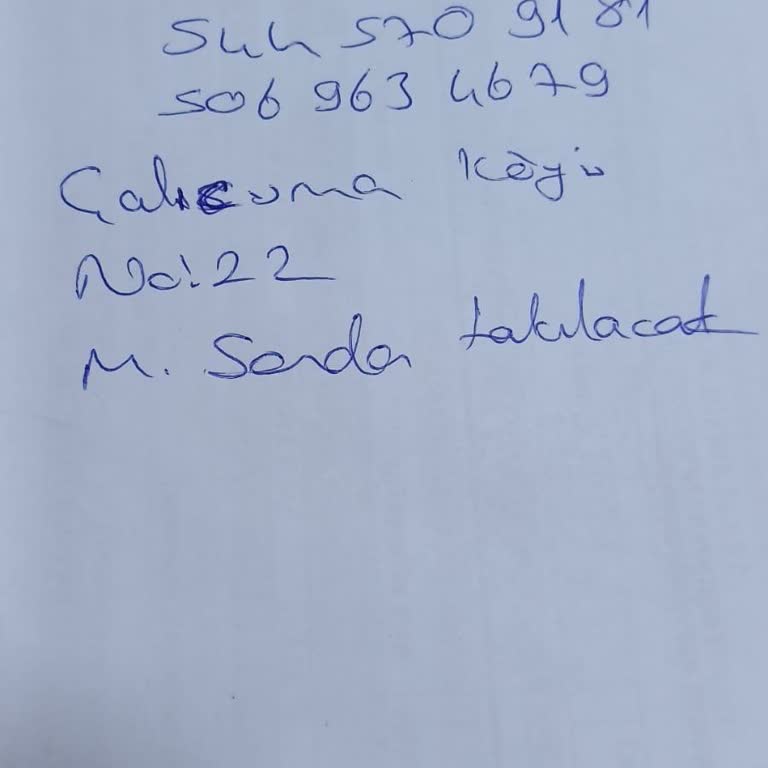 544 570 91 81
506 963 4679
Çalıcuma Köyü
No:22
M. Sonda takılacak